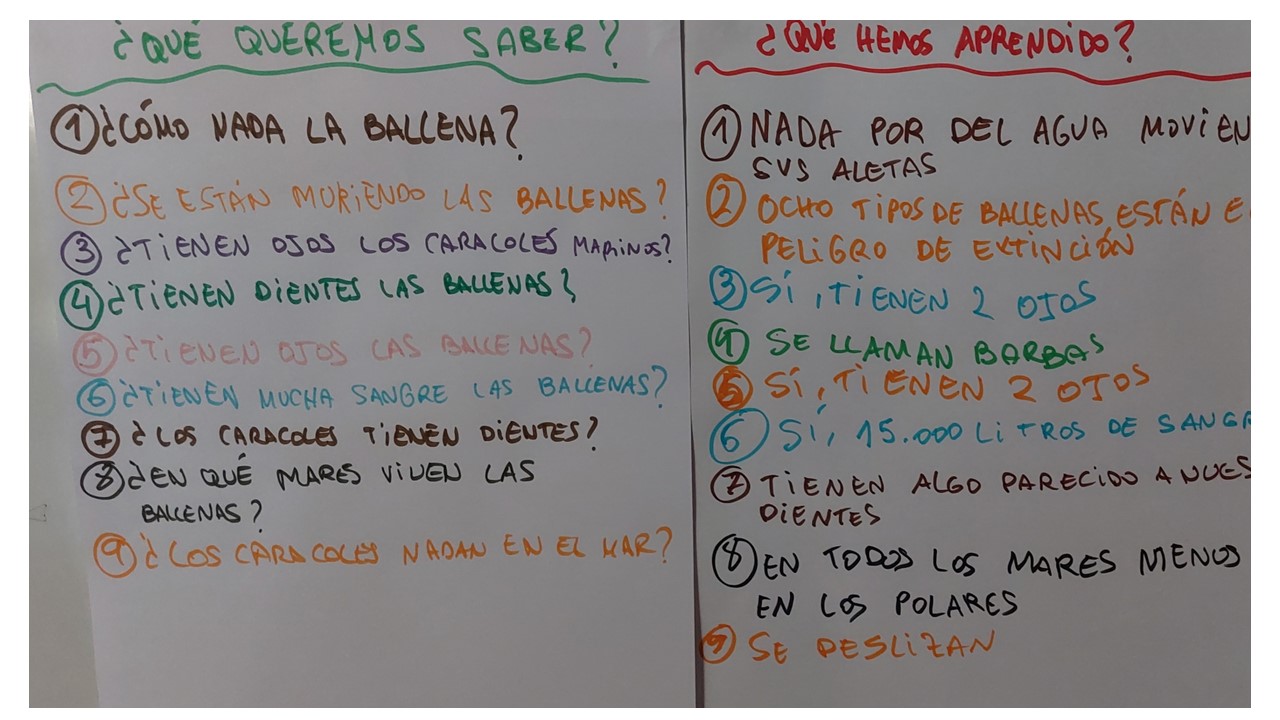 ¿QUÉ QUEREMOS SABER?
① ¿CÓMO NADA LA BALLENA?
② ¿SE ESTÁN MURIENDO LAS BALLENAS?
③ ¿TIENEN OJOS LOS CARACOLES MARINOS?
④ ¿TIENEN DIENTES LAS BALLENAS?
⑤ ¿TIENEN OJOS LAS BALLENAS?
⑥ ¿TIENEN MUCHA SANGRE LAS BALLENAS?
⑦ ¿LOS CARACOLES TIENEN DIENTES?
⑧ ¿EN QUÉ MARES VIVEN LAS
BALLENAS?
⑨ ¿LOS CARACOLES NADAN EN EL MAR?
¿QUÉ HEMOS APRENDIDO?
① NADA POR DEL AGUA MOVIEN
SUS ALETAS
② OCHO TIPOS DE BALLENAS ESTÁN E
PELIGRO DE EXTINCIÓN
③ SÍ, TIENEN 2 OJOS
④ SE LLAMAN BARBAS
⑤ SÍ, TIENEN 2 OJOS
⑥ SÍ, 15.000 LITROS DE SANGR
⑦ TIENEN ALGO PARECIDO A NUES
DIENTES
⑧ EN TODOS LOS MARES MENOS
EN LOS POLARES
⑨ SE DESLIZAN